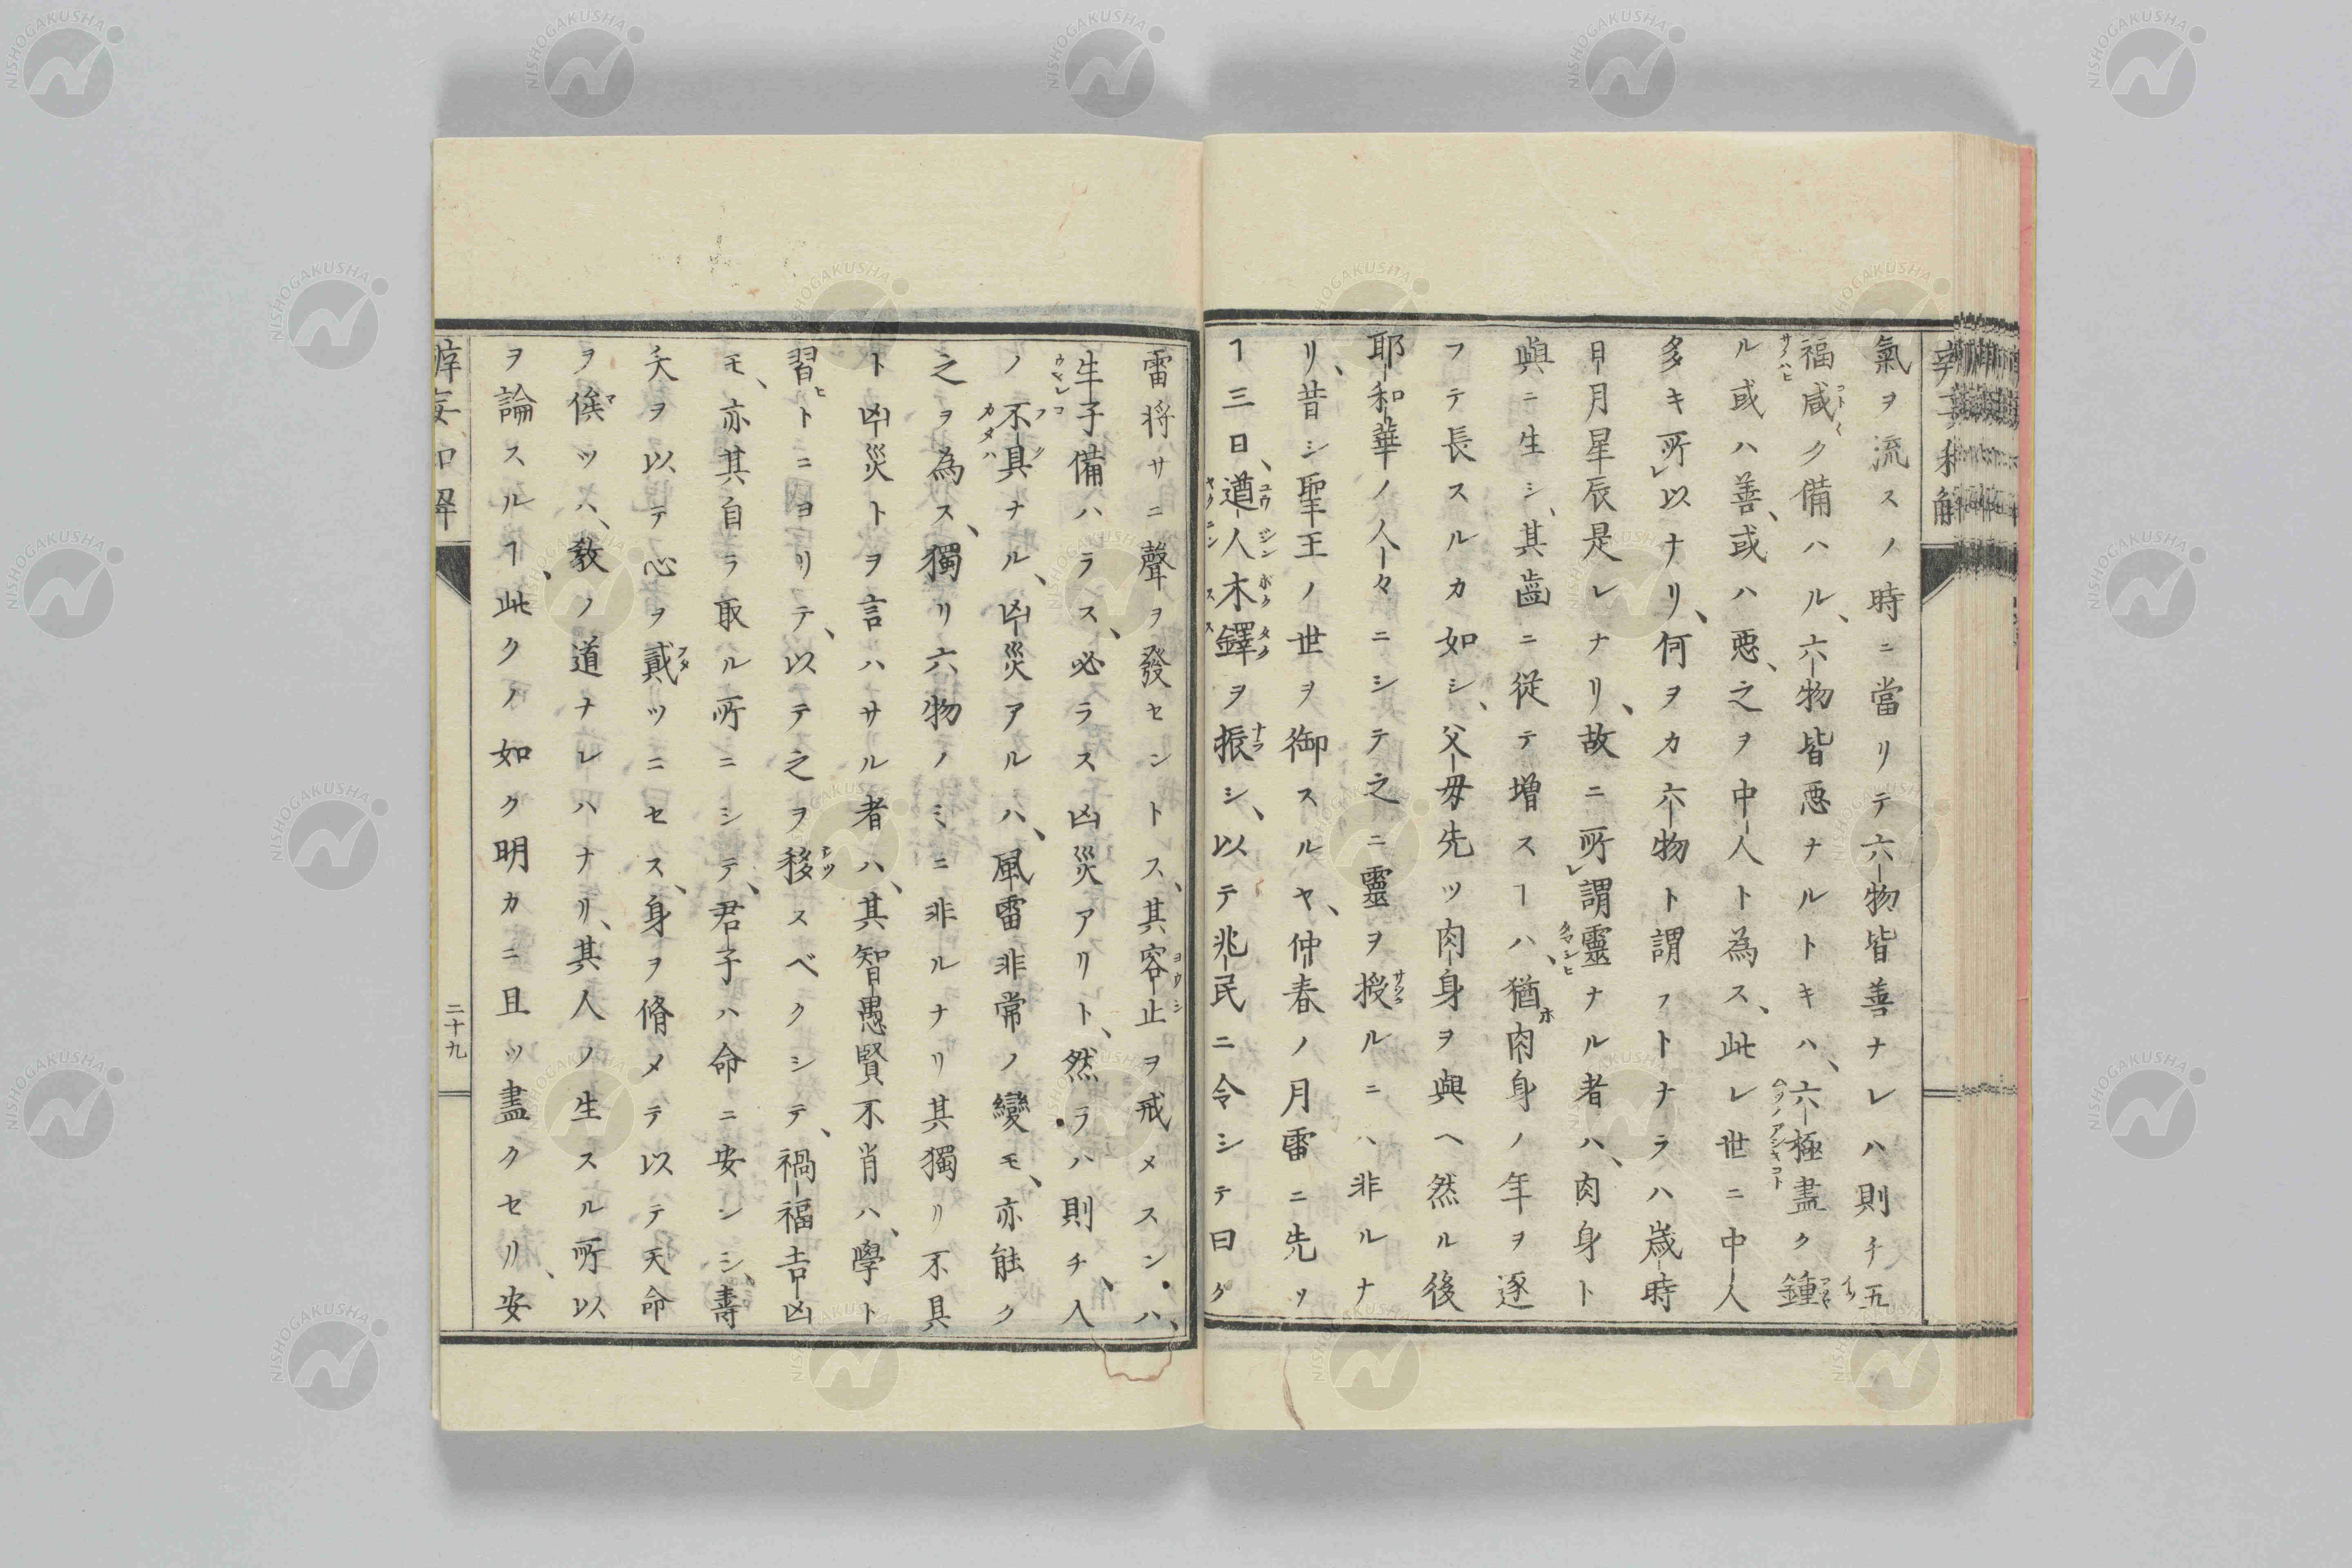 氣ヲ流スノ時ニ當リテ六物皆善ナレハ則チ五
福咸ク備ハル、六物皆惡ナルトキハ、六極盡ク鍾
ル或ハ善、或ハ惡、之ヲ中人ト為ス、此レ世ニ中人
多キ所以ナリ、何ヲカ六物ト謂フトナラハ歳時
日月星辰是レナリ、故ニ所謂靈ナル者ハ、肉身ト
與ニ生シ、其齒ニ從テ增スヿハ、猶肉身ノ年ヲ逐
フテ長スルカ如シ、父母先ツ肉身ヲ與ヘ然ル後
耶和華ノ人々ニシテ之ニ靈ヲ授ルニハ非ルナ
リ、昔シ聖王ノ世ヲ御スルヤ、仲春ノ月雷ニ先ツ
ヿ三日、遒人木鐸ヲ振シ、以テ兆民ニ令シテ曰ク
雷将サニ聲ヲ發セントス、其容止ヲ戒メスンハ、
生子備ハラス、必ラス凶災アリト、然ラハ則チ、人
ノ不具ナル、凶災アルハ、風雷非常ノ變モ、亦能ク
之ヲ為ス、獨リ六物ノミニ非ルナリ其獨リ不具
ト凶災トヲ言ハサル者ハ、其智愚賢不肖ハ、學ト
習トニヨリテ、以テ之ヲ移スベクシテ、禍福吉凶
モ、亦其自ラ取ハル所ニシテ、君子ハ命ニ安ンシ、壽
夭ヲ以テ心ヲ貳ツニセス、身ヲ脩メテ以テ天命
ヲ俟ツハ、敎ノ道ナレハナリ、其人ノ生スル所以
ヲ論スルヿ、此クノ如ク明カニ且ツ盡クセリ、安
二十九